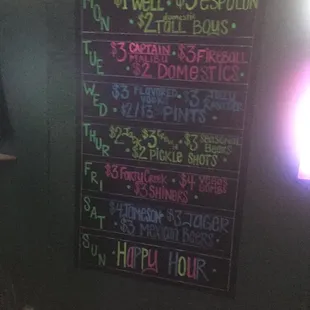 MON
$1 Well $3 espolon
$2 domestic TALL BOYS
TUE
$3 CAPTAIN MALIBU $3 FIREBALL
$2 DOMESTICS
WED
$3 FLAVORED
$2/$3 PINTS
THUR
$3 SEASONAL BEERS
$2 PICKLE SHOTS
FRI
$3 Forty Creek $4 VEGAS BOMBS
$3 SHINERS
SAT
$4 Jameson $3 JAGER
$3 MEXICAN BEERS
SUN
HAPPY HOUR